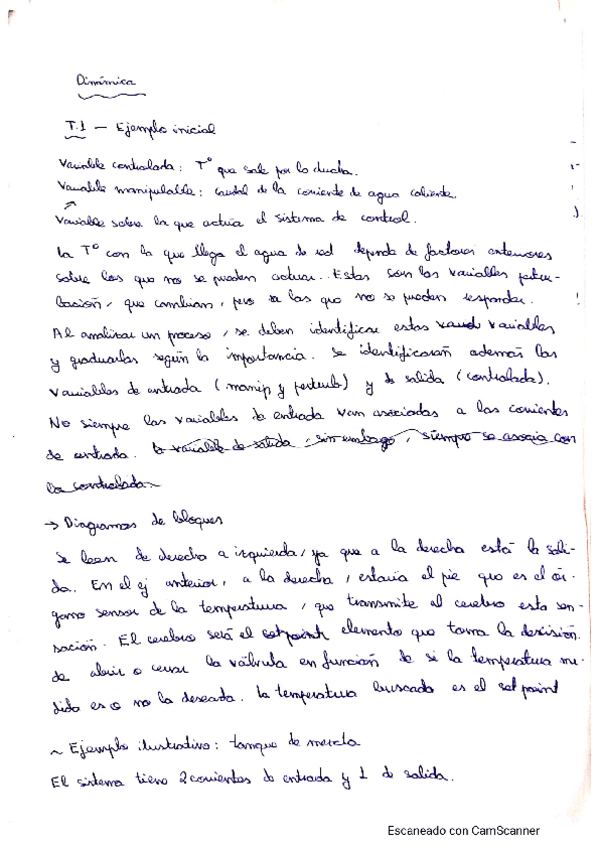 Dinámica
T.1 — Ejemplo inicial
Variable controlada: Tº que sale por la ducha.
Variable manipulable: caudal de la corriente de agua caliente.
Variable sobre la que actúa el sistema de control.
La Tº con la que llega el agua de red depende de factores exteriores
sobre los que no se pueden actuar. Estas son las variables pertur-
bación, que cambian, pero a las que no se pueden responder.
Al analizar un proceso, se deben identificar estas variables
y graduarlas según la importancia. Se identificarán además las
variables de entrada (manip y perturb) y de salida (controlada).
No siempre las variables de entrada van asociadas a las corrientes
de entrada. la variable de salida, sin embargo, siempre se asocia con
la controlada~
→ Diagramas de bloques
Se leen de derecha a izquierda, ya que a la derecha está la sali-
da. En el ej anterior, a la derecha, estaría el pie que es el ór-
gano sensor de la temperatura, que transmite al cerebro esta sen-
sación. El cerebro será el setpoint elemento que toma la decisión
de abrir o cerrar la válvula en función de si la temperatura me-
dida es o no la deseada. La temperatura buscada es el setpoint
~ Ejemplo ilustrativo: tanque de mezcla
El sistema tiene 2 corrientes de entrada y 1 de salida.
Escaneado con CamScanner